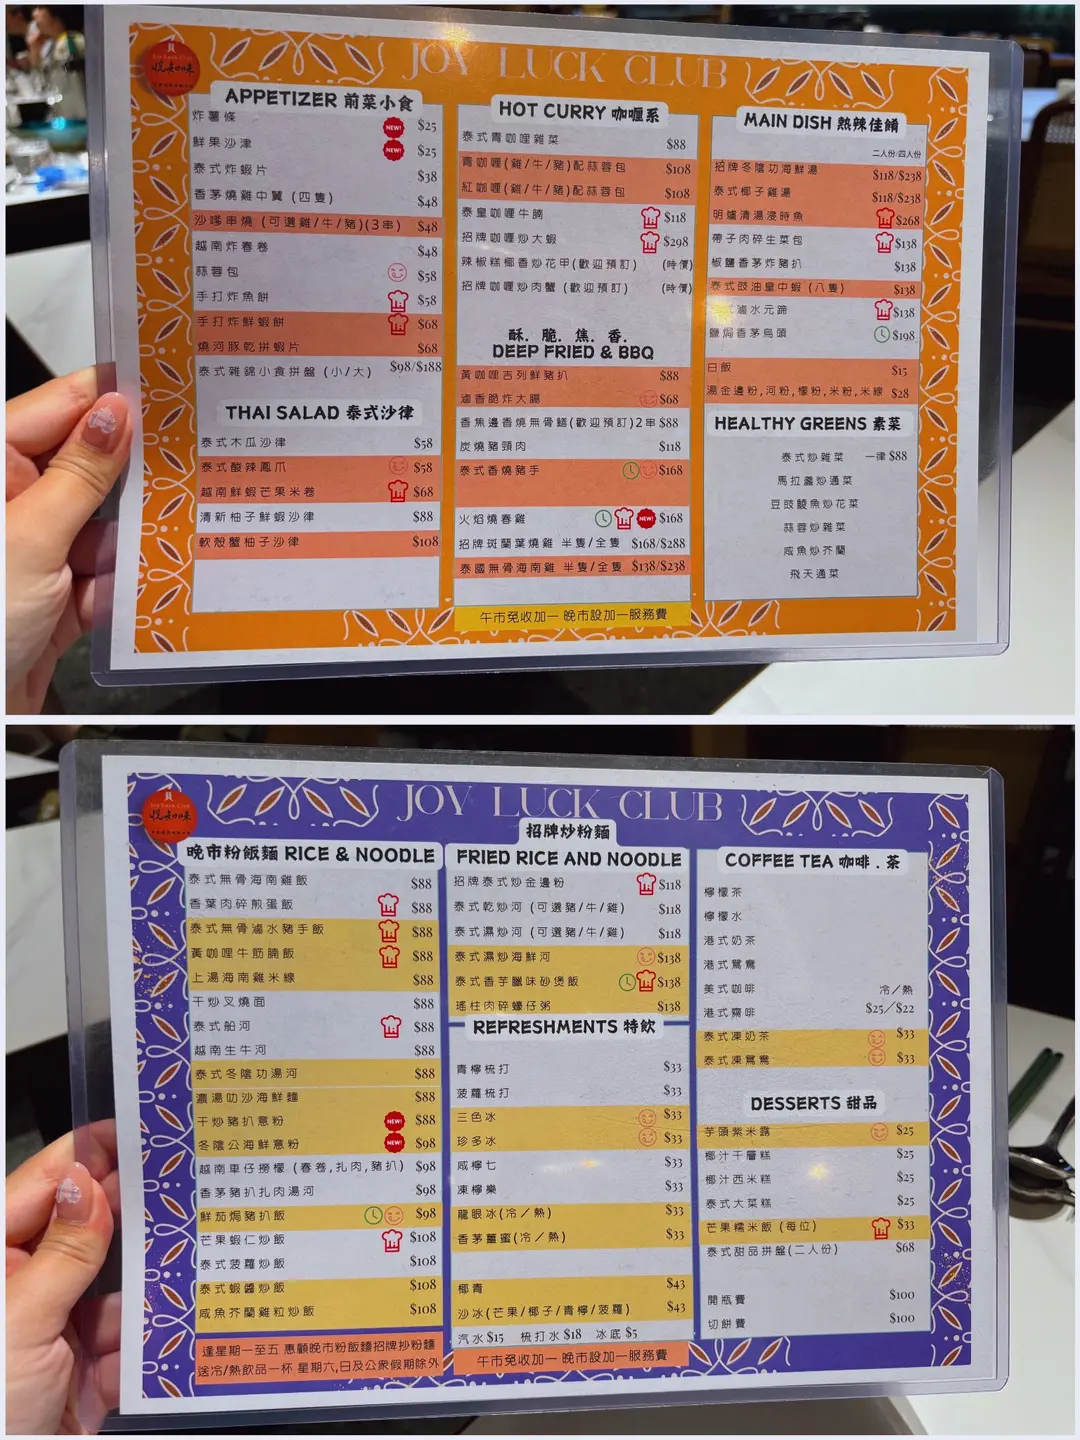 Joy Luck Club
悦知味
JOY LUCK CLUB
APPETIZER 前菜小食
炸薯條 NEW! $25
鮮果沙津 NEW! $25
泰式炸蝦片 $38
香茅燒雞中翼 (四隻) $48
沙嗲串燒 (可選雞/牛/豬)(3串) $48
越南炸春卷 $48
蒜蓉包 $58
手打炸魚餅 $58
手打炸鮮蝦餅 $68
燒河豚乾拼蝦片 $68
泰式雜錦小食拼盤 (小/大) $98/$188
THAI SALAD 泰式沙律
泰式木瓜沙律 $58
泰式酸辣鳳爪 $58
越南鮮蝦芒果米卷 $68
清新柚子鮮蝦沙律 $88
軟殼蟹柚子沙律 $108
HOT CURRY 咖喱系
泰式青咖喱雜菜 $88
青咖喱(雞/牛/豬)配蒜蓉包 $108
紅咖喱(雞/牛/豬)配蒜蓉包 $108
泰皇咖喱牛腩 $118
招牌咖喱炒大蝦 $298
辣椒糕椰香炒花甲(歡迎預訂) (時價)
招牌咖喱炒肉蟹 (歡迎預訂) (時價)
酥. 脆. 焦. 香.
DEEP FRIED & BBQ
黃咖喱吉列鮮豬扒 $88
滷香脆炸大腸 $68
香蕉邊香燒無骨鱔(歡迎預訂)2串 $88
炭燒豬頸肉 $118
泰式香燒豬手 $168
火焰燒春雞 NEW! $168
招牌斑蘭葉燒雞 半隻/全隻 $168/$288
泰國無骨海南雞 半隻/全隻 $138/$238
午市免收加一 晚市設加一服務費
MAIN DISH 熱辣佳餚
二人份/四人份
招牌冬陰功海鮮湯 $118/$238
泰式椰子雞湯 $118/$238
明爐清湯浸時魚 $268
帶子肉碎生菜包 $138
椒鹽香茅炸豬扒 $138
泰式豉油皇中蝦 (八隻) $138
滷水元蹄 $138
鹽焗香茅烏頭 $198
白飯 $15
湯金邊粉,河粉,檬粉,米粉,米線 $28
HEALTHY GREENS 素菜
泰式炒雜菜 一律 $88
馬拉盞炒通菜
豆豉鯪魚炒花菜
蒜蓉炒雜菜
咸魚炒芥蘭
飛天通菜
Joy Luck Club
悦知味
JOY LUCK CLUB
晚市粉飯麵 RICE & NOODLE
泰式無骨海南雞飯 $88
香葉肉碎煎蛋飯 $88
泰式無骨滷水豬手飯 $88
黃咖喱牛筋腩飯 $88
上湯海南雞米線 $88
干炒叉燒面 $88
泰式船河 $88
越南生牛河 $88
泰式冬陰功湯河 $88
濃湯叻沙海鮮麵 $88
干炒豬扒意粉 NEW! $88
冬陰公海鮮意粉 NEW! $98
越南車仔撈檬 (春卷,扎肉,豬扒) $98
香茅豬扒扎肉湯河 $98
鮮茄焗豬扒飯 $98
芒果蝦仁炒飯 $108
泰式菠蘿炒飯 $108
泰式蝦醬炒飯 $108
咸魚芥蘭雞粒炒飯 $108
逢星期一至五 惠顧晚市粉飯麵招牌抄粉麵
送冷/熱飲品一杯 星期六,日及公眾假期除外
招牌炒粉麵
FRIED RICE AND NOODLE
招牌泰式炒金邊粉 $118
泰式乾炒河 (可選豬/牛/雞) $118
泰式濕炒河 (可選豬/牛/雞) $118
泰式濕炒海鮮河 $138
泰式香芋臘味砂煲飯 $138
瑤柱肉碎蠔仔粥 $138
REFRESHMENTS 特飲
青檸梳打 $33
菠蘿梳打 $33
三色冰 $33
珍多冰 $33
咸檸七 $33
凍檸樂 $33
龍眼冰(冷/熱) $33
香茅薑蜜(冷/熱) $33
椰青 $43
沙冰(芒果/椰子/青檸/菠蘿) $43
汽水 $15 梳打水 $18 冰底 $5
午市免收加一 晚市設加一服務費
COFFEE TEA 咖啡.茶
檸檬茶
檸檬水
港式奶茶
港式鴛鴦
美式咖啡 冷/熱
港式齋啡 $25/$22
泰式凍奶茶 $33
泰式凍鴛鴦 $33
DESSERTS 甜品
芋頭紫米露 $25
椰汁千層糕 $25
椰汁西米糕 $25
泰式大菜糕 $25
芒果糯米飯 (每位) $33
泰式甜品拼盤(二人份) $68
開瓶費 $100
切餅費 $100